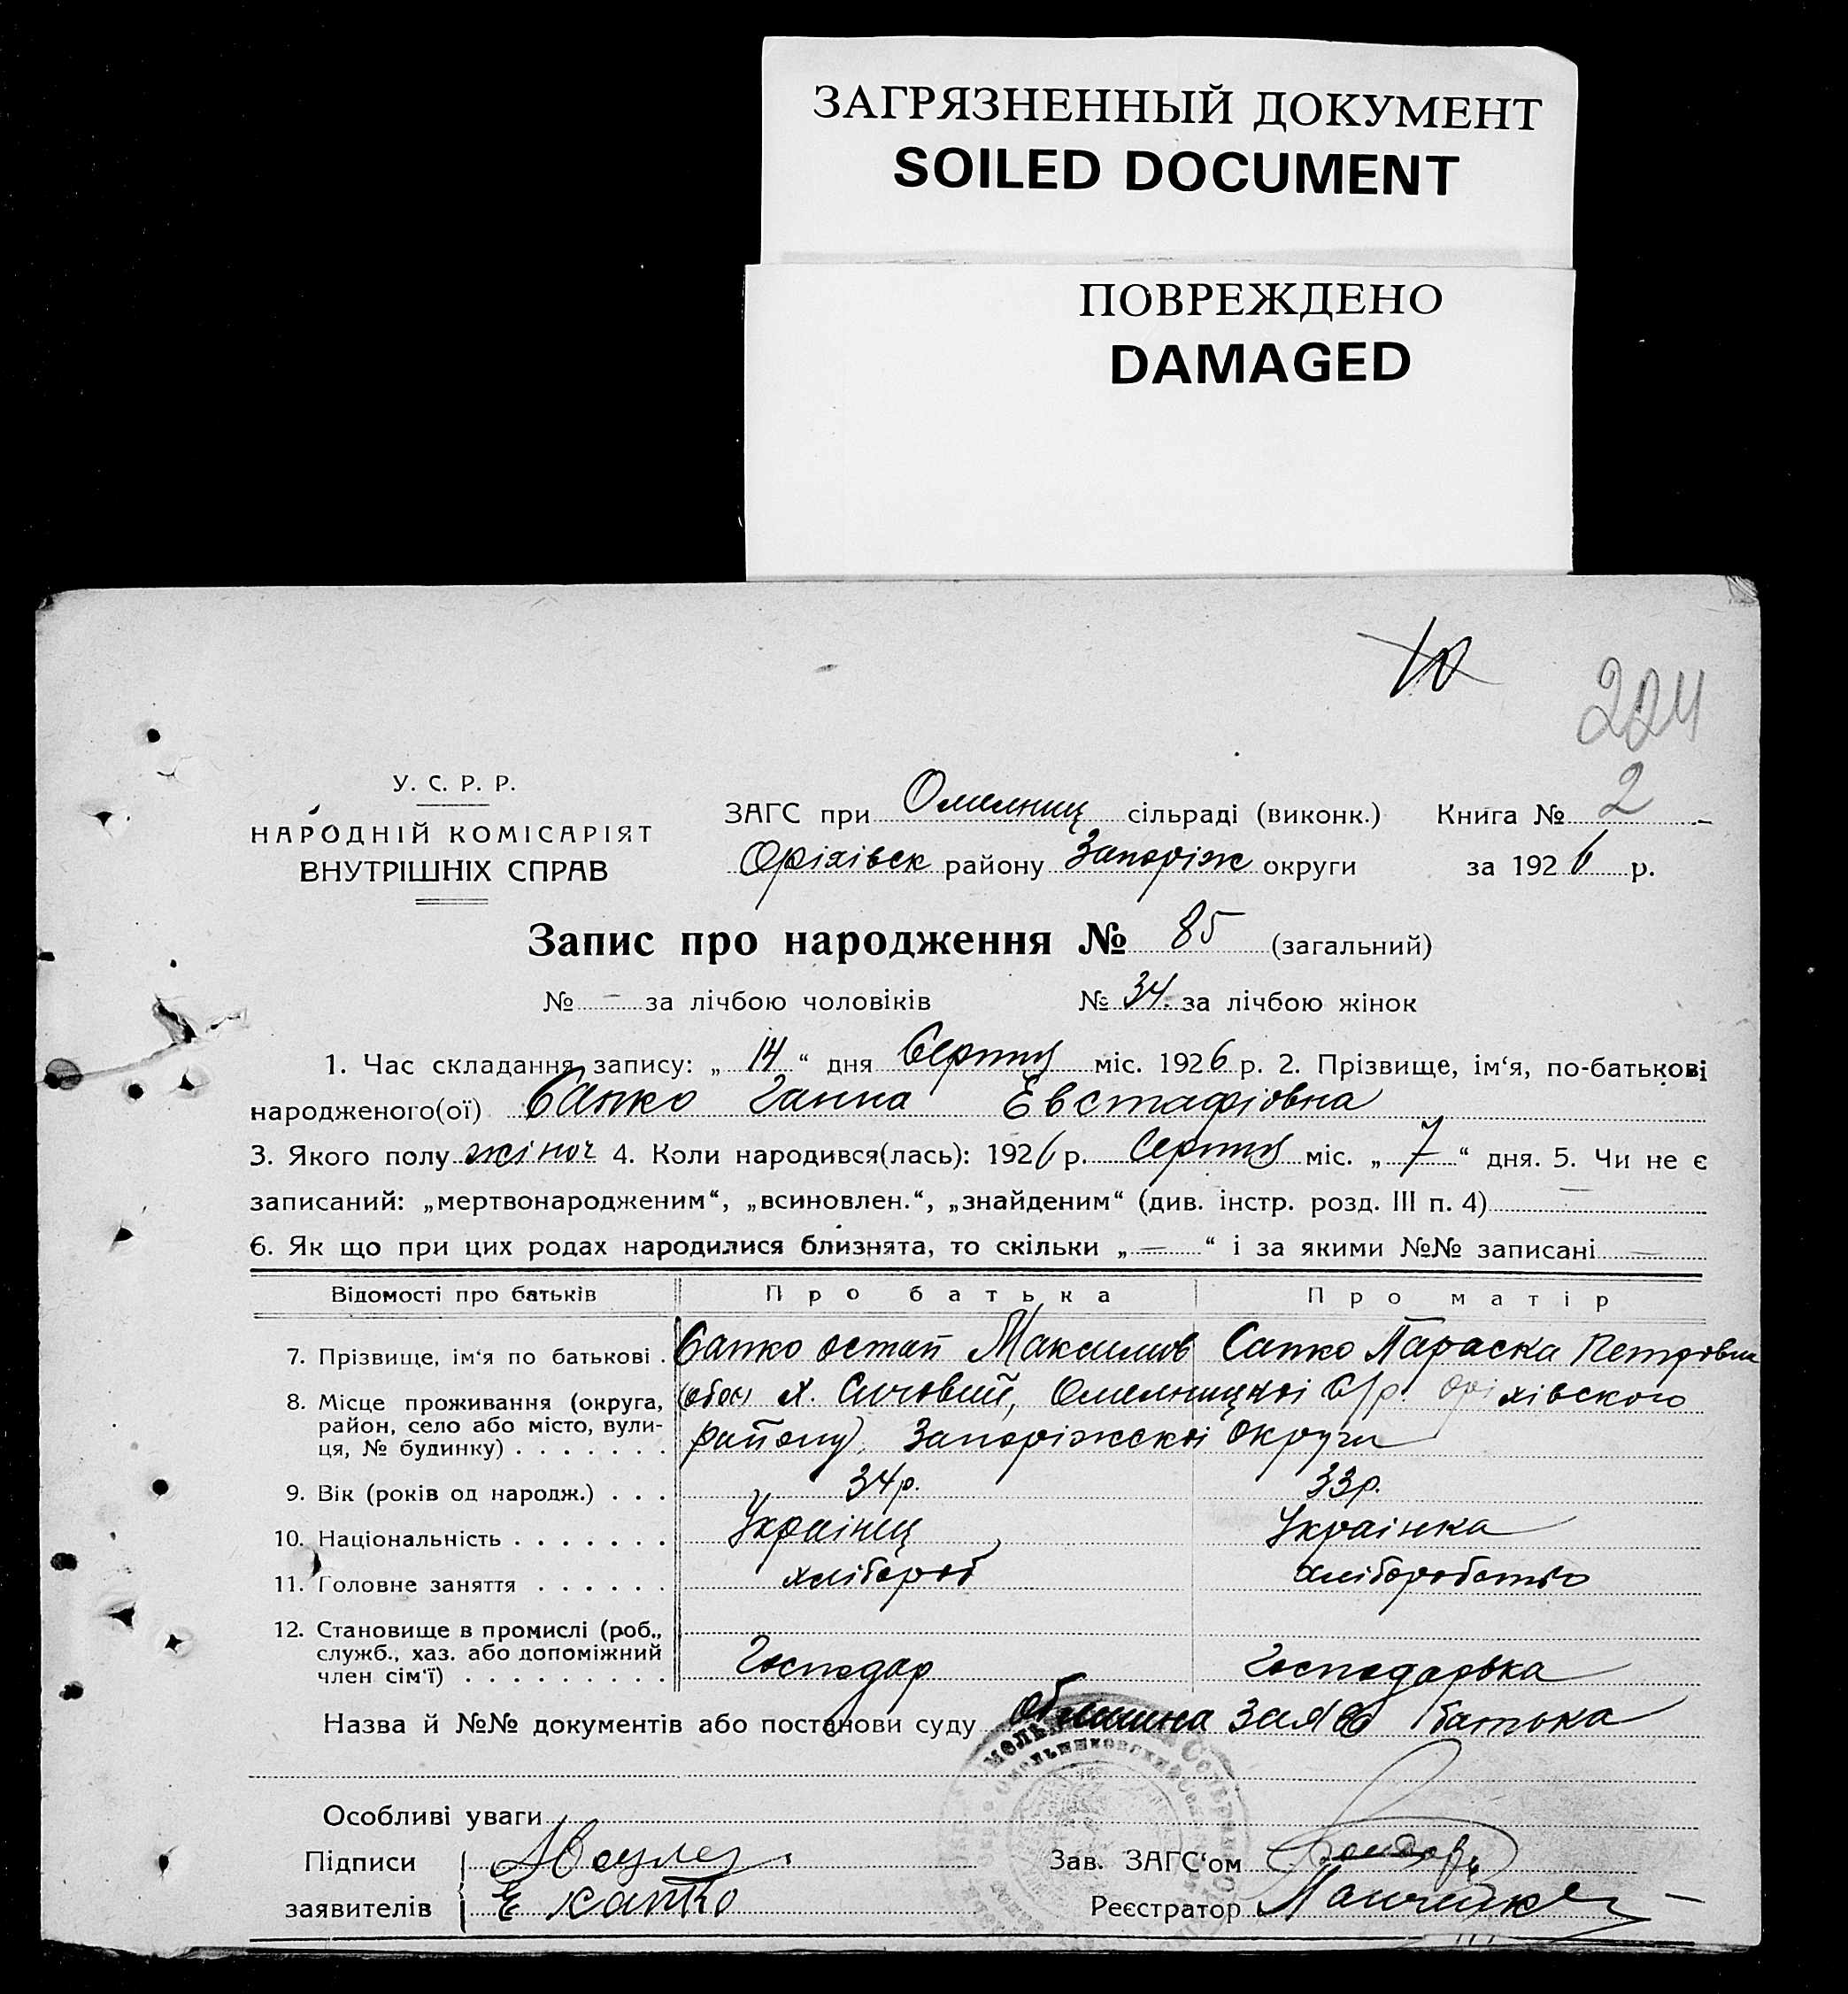 ЗАГРЯЗНЕННЫЙ ДОКУМЕНТ
SOILED DOCUMENT
ПОВРЕЖДЕНО
DAMAGED
10
224
У. С. Р. Р.
НАРОДНІЙ КОМІСАРІЯТ
ВНУТРІШНІХ СПРАВ
ЗАГС при Омелниц сільраді (виконк.) Книга № 2
Оріхівск району Запоріж округи за 1926 р.
Запис про народження № 85 (загальний)
№ – за лічбою чоловіків № 34. за лічбою жінок
1. Час складання запису: „ 14 “ дня Серпня міс. 1926 р. 2. Прізвище, ім‘я, по-батькові
народженого(ої) Сапко Ганна Евстафіовна
3. Якого полу жіноч 4. Коли народився(лась): 1926 р. Серпня міс. „ 7 “ дня. 5. Чи не є
записаний: „мертвонародженим“, „всиновлен.“, „знайденим“ (див. інстр. розд. III п. 4) –
6. Як що при цих родах народилися близнята, то скільки „ – “ і за якими №№ записані –
Відомості про батьків Про батька Про матір
7. Прізвище, ім‘я по батькові . Сапко Остап Максимов Сапко Параска Петровна
8. Місце проживання (округа, х. Сичовий, Омелницкоі С/р. Оріхівского
район, село або місто, вули-
ця, № будинку) . . . . . . . району, Запоріжскоі Округи
9. Вік (років од народж.) . . . 34р. 33р.
10. Національність . . . . . . . Украінец Украінка
11. Головне заняття . . . . . . хлібороб хліборобство
12. Становище в промислі (роб.,
служб., хаз. або допоміжний
член сім‘ї) . . . . . . . . . Господар Господарька
Назва й №№ документів або постанови суду заява батька
Особливі уваги
Підписи Зав. ЗАГС‘ом
заявителів Е Сапко Реєстратор